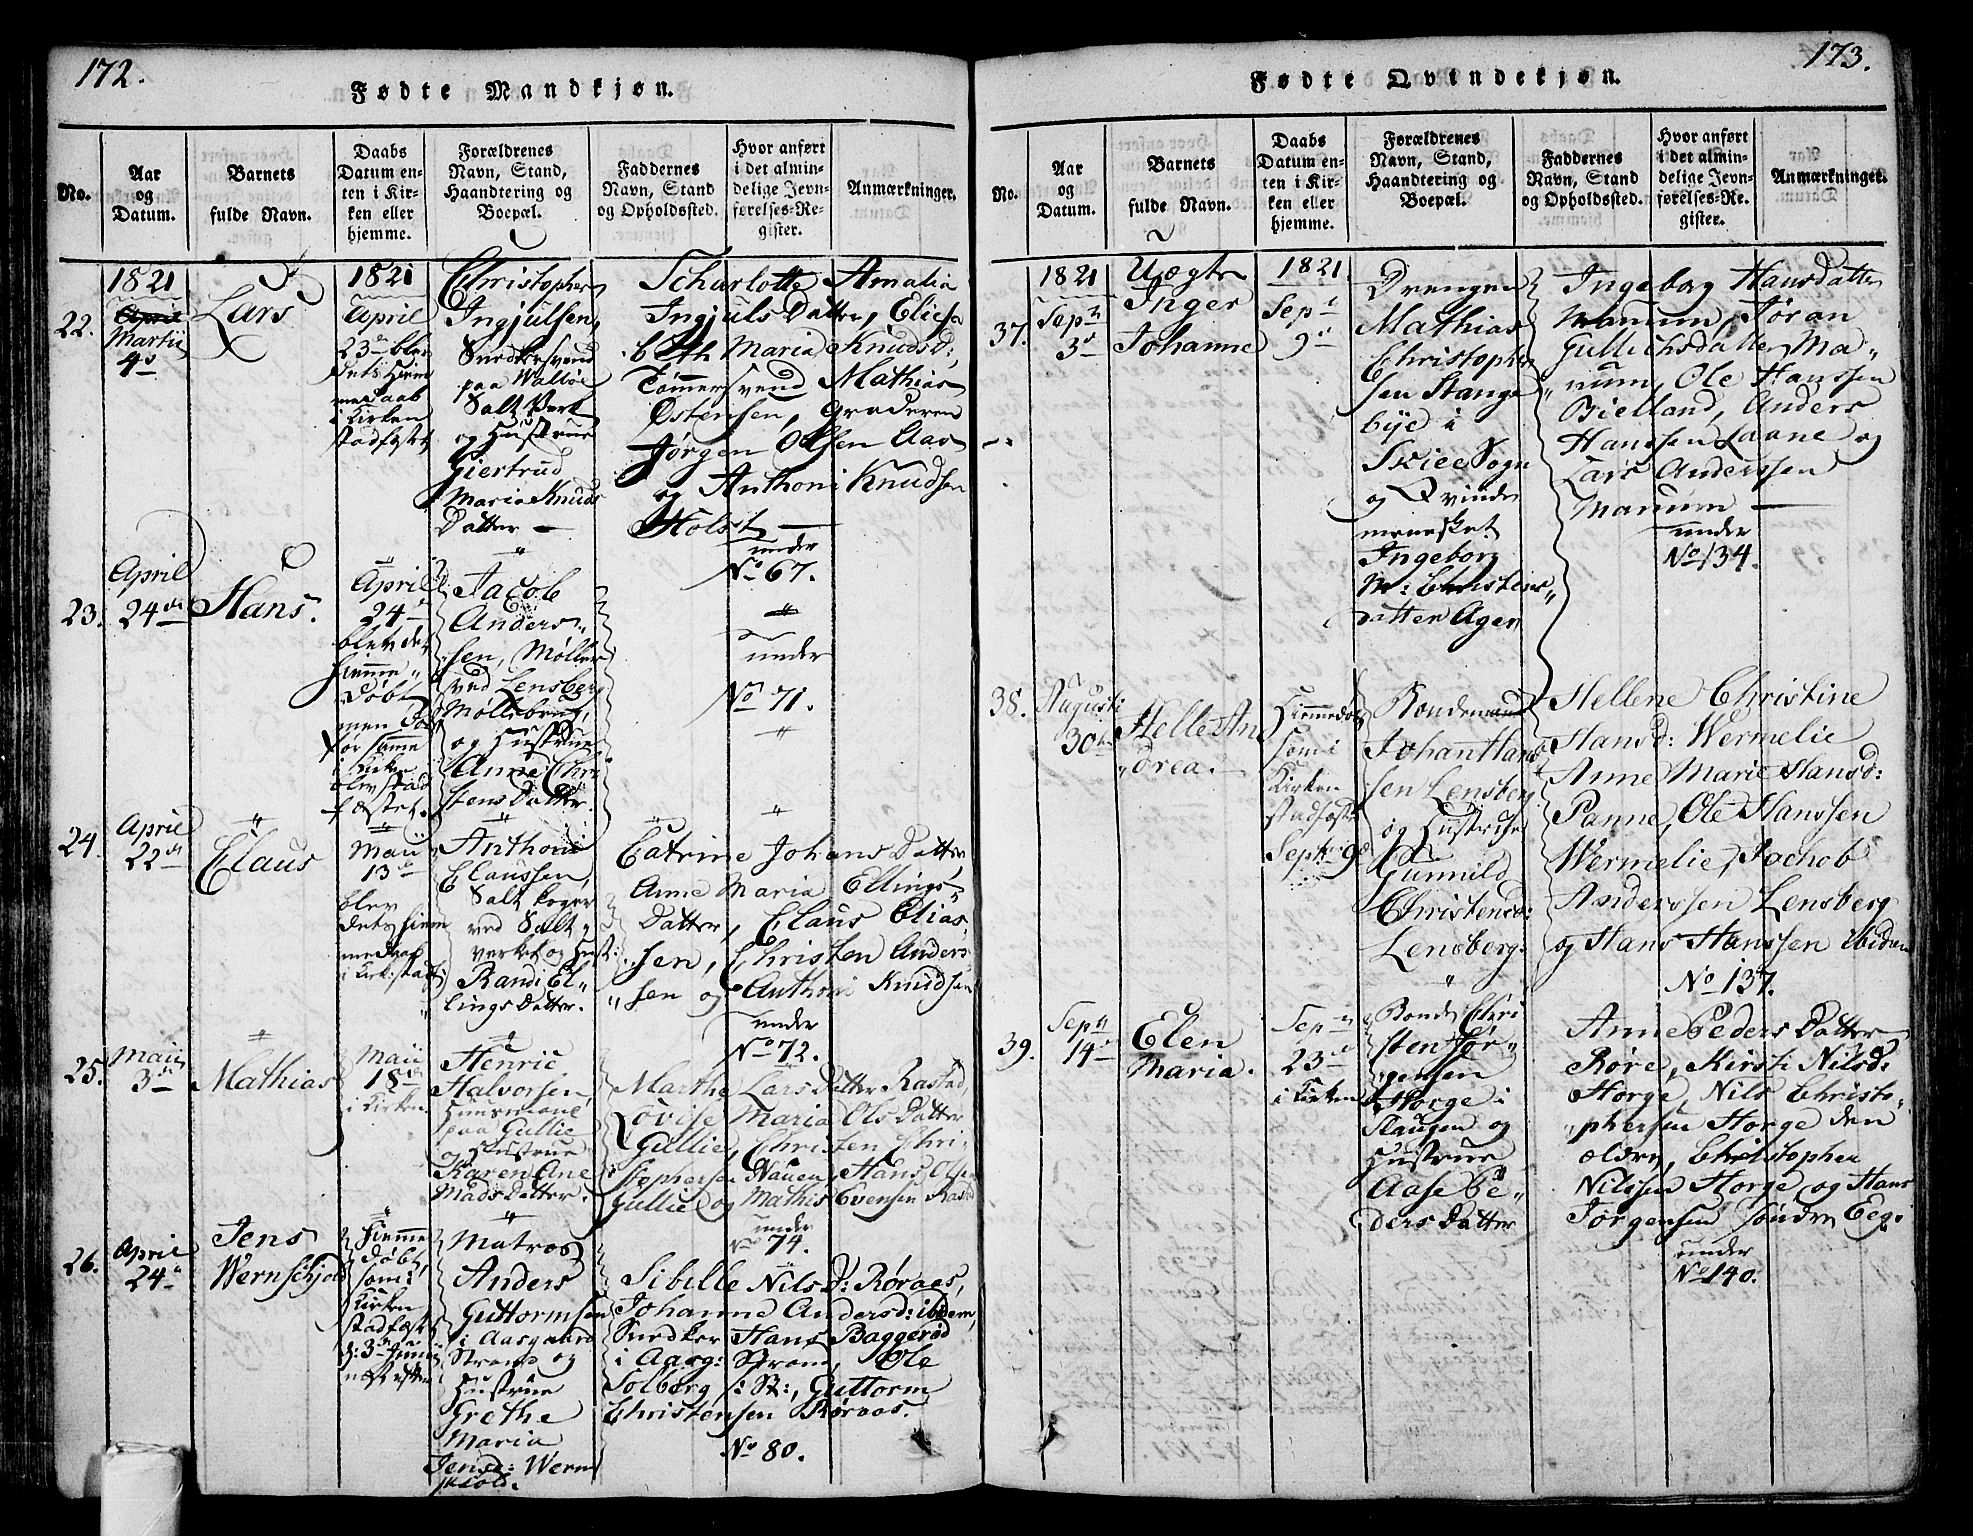 172.
Fødte Mandkjøn.
No.
Aar
og
Datum.
Barnets
fulde Navn.
Daabs
Datum en-
ten i Kir-
ken eller
hjemme.
Forældrenes
Navn, Stand,
Haandtering og
Boepæl.
Faddernes
Navn, Stand
og Opholdssted.
Hvor anført
i det almin-
delige Jevn-
førelses-Re-
gister.
Anmærkninger.
22.
1821
April
Martii
4de
Lars
1821
April
23de blev
dets Hiem
medaab
i Kirken
stadfæstet
Christopher
Ingjulsen,
Snedkersvend
paa Walløe
Salt Verk
og Hustrue
Giertrud
Maria Knuds
Datter —
Scharlotte Amalia
Ingjuls Datter, Eliesa
beth Maria Knudsd:,
Tømmersvend Mathias
Østensen, Graderer
Jørgen Olsen Aas
og Anthoni Knudsen
Holst —
under
No 67.
23.
April
24de
Hans.
April
24de
blev det
hiemme
døbt
men
før samme
i Kirken
blev stad
fæstet.
Jacob
Anders
sen, Møller
ved Lensberg
Møllebrug,
og Hustrue
Anne Chri
stens Datter.
under
No 71.
24.
April
22de
Claus
Maii
13de
blev
dets hiem
medaab
i Kirk: stadf:
Anthoni
Claussen,
Salt koger
ved Salt
verket og Hust:
Randi El-
lings Datter.
Catrine Johans Datter,
Anne Maria Ellings
Datter, Claus Elias
sen, Christen Anders
sen og Anthoni Knudsen
under
No 72.
25.
Maii
3de
Mathias
Maii
18de
i Kirken
Henric
Halvorsen,
Huusmand
paa Gullie
og Hustrue
Karen Ane
Mads Datter.
Marthe Lars Datter Rastad,
Lovise Maria Ols Datter
Gullie, Christen Chri
stophersen Hauen, Hans Olsen
Gullie og Mathis Evensen Rasta
under
No 74.
26.
April
24de
Jens
Wernschjold
Hiemme
døbt,
som i
Kirken
stadfæst
d: 3de Junii
næst efter
Matros
Anders
Guttormsen
i Aasgaard
Strand og
Hustrue
Grethe
Maria
Jensd: Wern
skiold.
Sibille Nilsd: Røraas,
Johanne Andersd: ibidem,
Snedker Hans Baggerød
i Aasg: Strand, Ole
Solberg i: St:, Guttorm
Christensen Røraas.
No 80.
173.
Fødte Qvindekjøn.
No.
Aar
og
Datum.
Barnets
fulde Navn.
Daabs
Datum en-
ten i Kir-
ken eller
hjemme.
Forældrenes
Navn, Stand,
Haandtering og
Boepæl.
Faddernes
Navn, Stand
og Opholdssted.
Hvor anført
i det almin-
delige Jevn-
førelses-Re-
gister.
Anmærkninger.
37.
1821
Septr
3de
Uægte
Inger
Johanne
1821.
Sept
9de
Drengen
Mathias
Christopher
sen Stange
bye i
Skiee Sogn
og Qvinde
mennesket
Ingeborg
M: Christens
datter Ager
Ingeborg Hansdatter
Manum, Jøran
Gullichsdatter Ma-
num, Ole Hanssen
Bielland, Anders
Hanssen Laane og
Lars Anderssen
Manum —
under
No 134.
38.
Augusti
30te
Helle An
drea.
Hiemmedøbt
som i
Kirken
stadfæst:
Septr 9de
Bondemand
Johan Hans
sen Lensberg
og Hustrue
Gunnild
Christensd:
Lensberg.
Hellene Christine
Hansd: Wermelie
Anne Marie Hansd:
Panne, Ole Hanssen
Wermelie, Jochob
Anderssen Lensberg
og Hans Hanssen ibidem
No 137.
39.
Septr
14de
Elen
Maria.
Septr
23de
i Kirken
Bonde Chri
sten Jør-
gensen
Horge i
Slaugen og
Hustrue
Aase Pe-
ders Datter
Anne Peders Datter
Røre, Kirsti Nilsd:
Horge, Nils Christo-
phersen Horge den
ældre, Christopher
Nilssen Horge og Hans
Jørgensen søndre Eeg.
under
No 140.